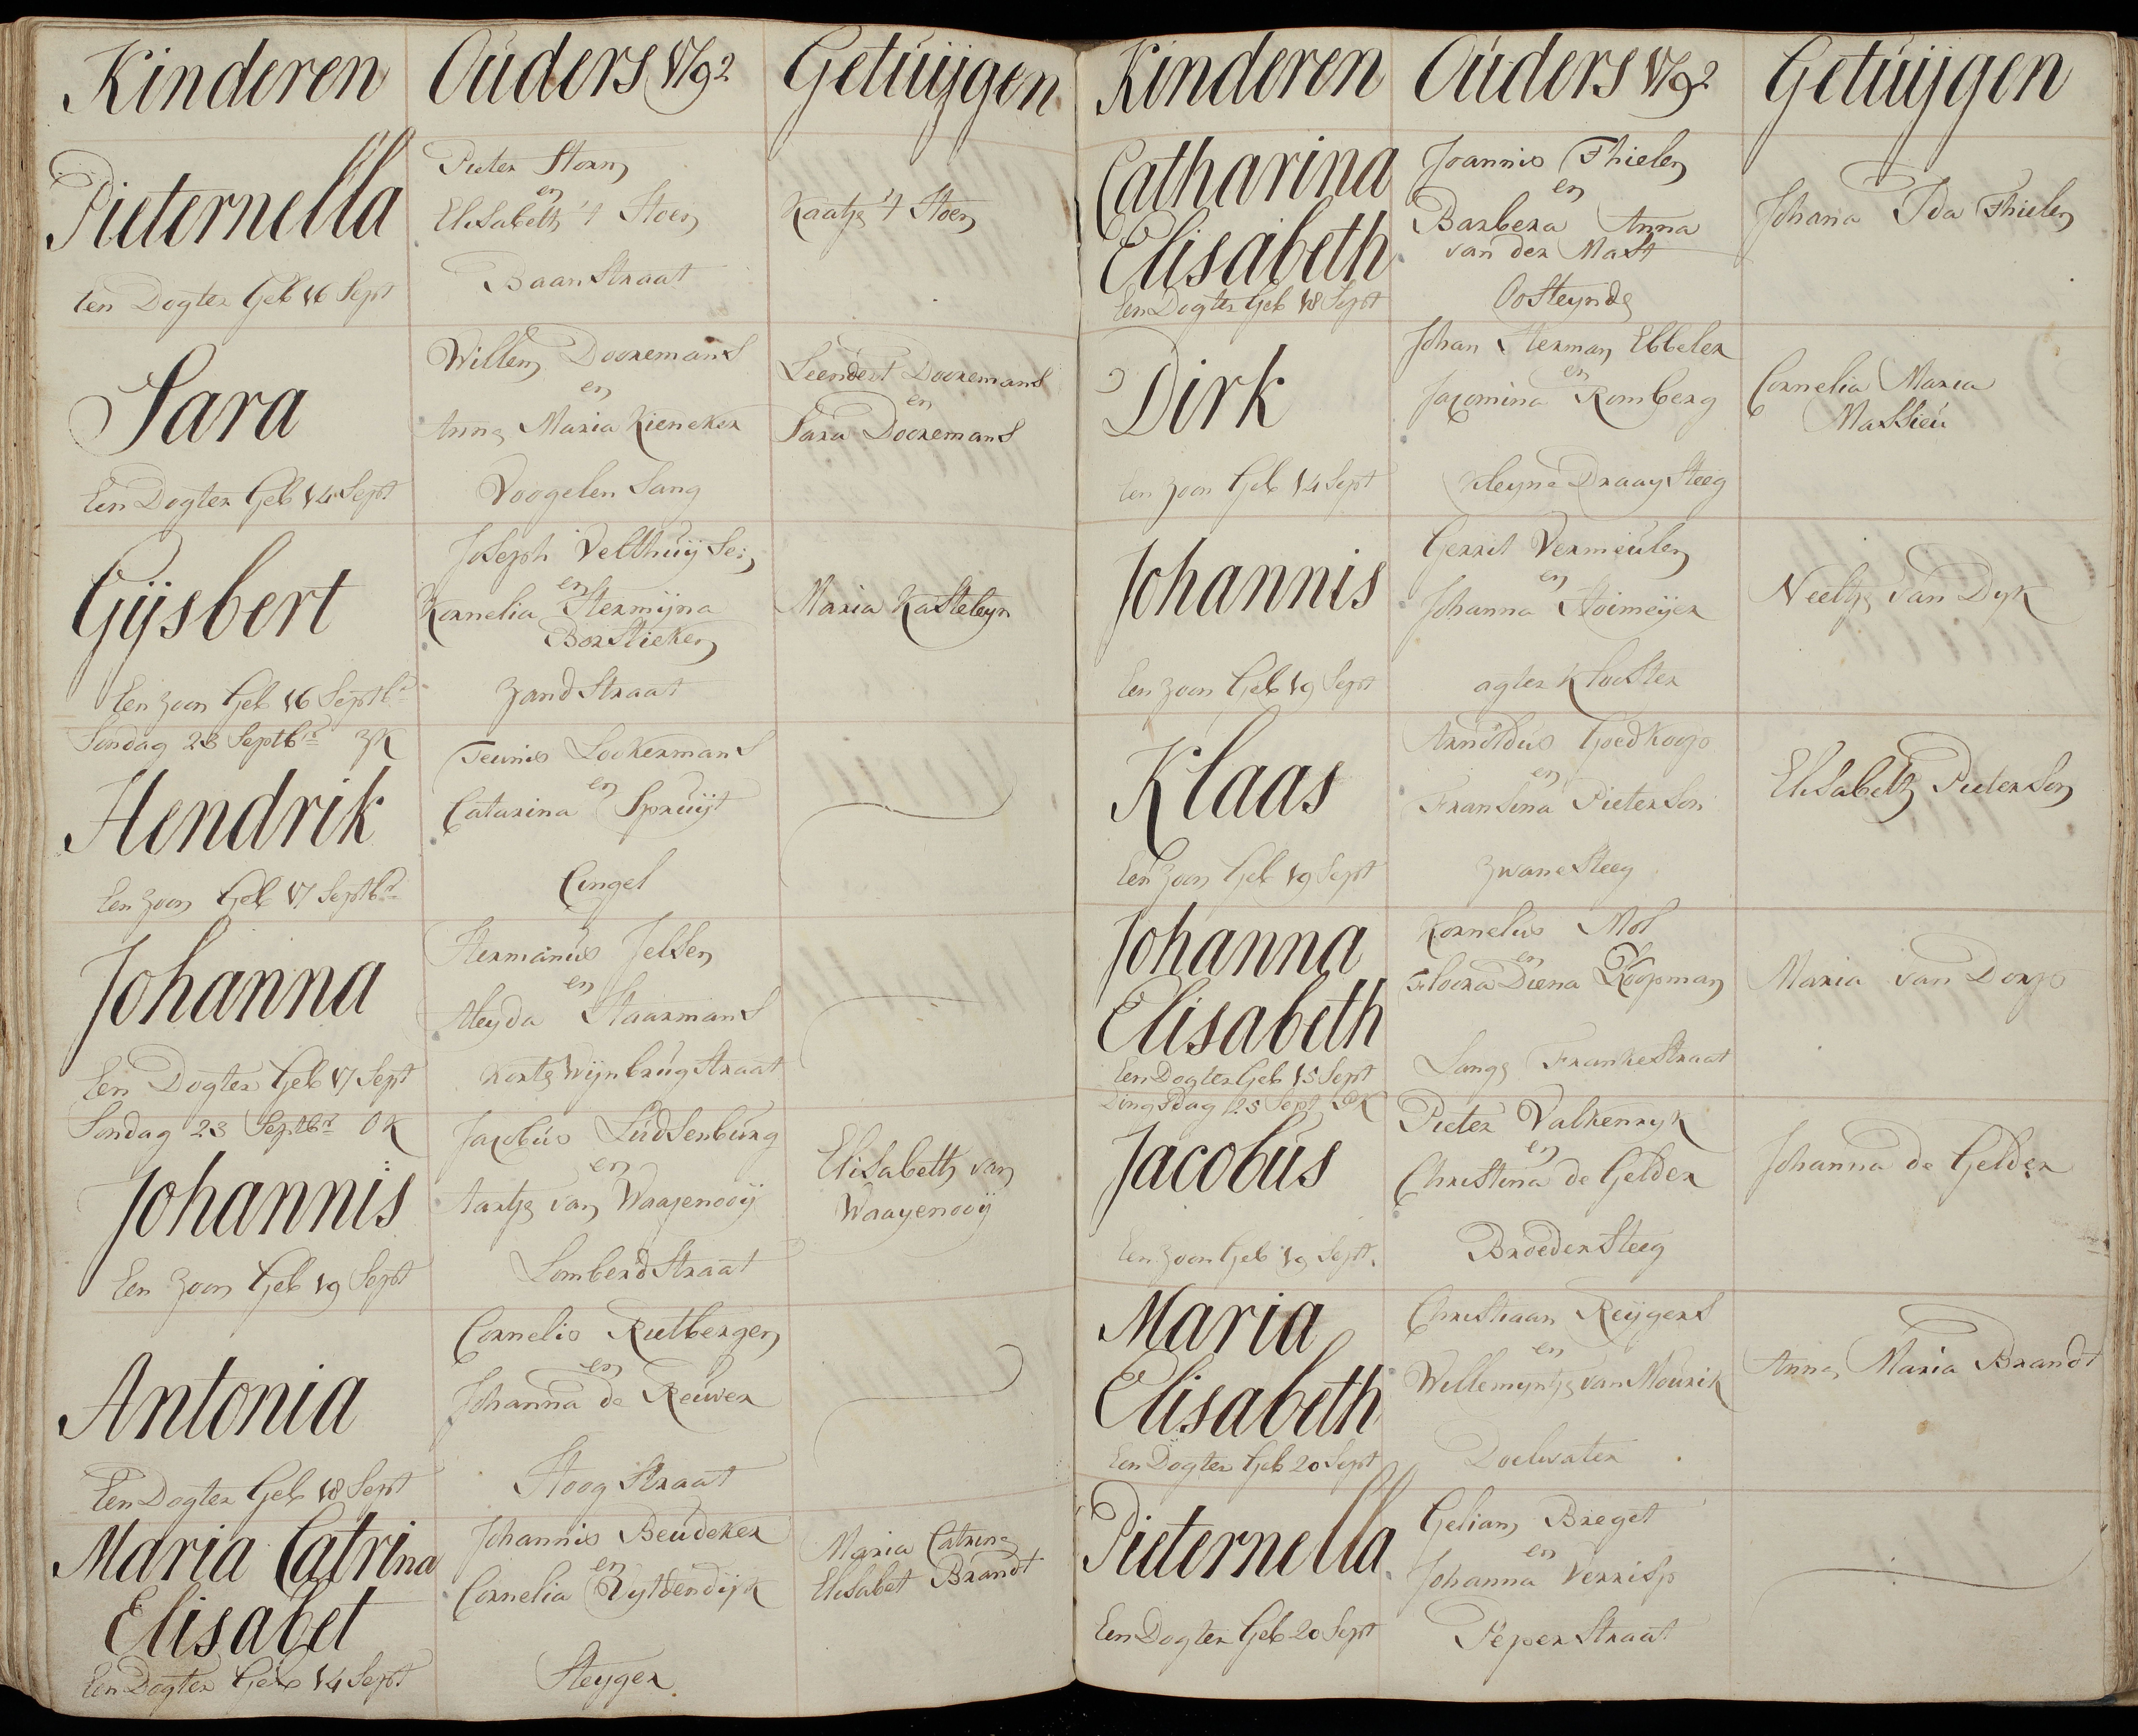 Kinderen Ouders 1792 Getuijgen
Pieternella
Een Dogter Geb 16 Sept
Pieter Horn
en
Elisabeth 't Hoen
Baan Straat
Kaatje 't Hoen
Sara
Een Dogter Geb 14 Sept
Willem Dooremans
en
Anna Maria Kieneker
Voogelen Sang
Leendert Dooremans
en
Sara Dooremans
Gijsbert
Een Zoon Geb 16 Septbr
Joseph Velthuijsen
en
Kornelia Hermijna
Borstieken
Zand Straat
Maria Kasteleyn
Sondag 23 Septbr ZK
Hendrik
Een Zoon Geb 17 Septbr
Teunis Lookermans
en
Catarina Spruijt
Cingel
Johanna
Een Dogter Geb 17 Sept
Hermanus Jelsen
en
Aleyda Haarmans
Korte Wijnbrug Straat
Sondag 23 Septbr OK
Johannis
Een Zoon Geb 19 Sept
Jacobus Ludsenburg
en
Aartje van Waayenooij
Lomberd Straat
Elisabeth van
Waayenooij
Antonia
Een Dogter Geb 18 Sept
Cornelis Rietbergen
en
Johanna de Reuver
Hoog Straat
Maria Catrina
Elisabet
Een Dogter Geb 14 Sept
Johannis Beudeker
en
Cornelia Zytdendijk
Steyger
Maria Catrina
Elisabet Brandt
Kinderen Ouders 1792 Getuijgen
Catharina
Elisabeth
Een Dogter Geb 18 Sept
Joannis Thielen
en
Barbera Anna
van der Mast
Oosteynde
Johana Ida Thielen
Dirk
Een Zoon Geb 14 Sept
Johan Herman Ebbeler
en
Jacomina Romberg
Kleyne Draay Steeg
Cornelia Maria
Massieu
Johannis
Een Zoon Geb 19 Sept
Gerrit Vermeulen
en
Johanna Hoimeijer
agter Klooster
Neeltje van Dyk
Klaas
Een Zoon Geb 19 Sept
Arnoldus Goedkoop
en
Fransina Pieterson
Zwane Steeg
Elisabeth Pieterson
Johanna
Elisabeth
Een Dogter Geb 15 Sept
Kornelis Mol
en
Floora Diena Koopman
Lange Franke Straat
Maria van Dorp
Dingsdag 25 Sept
Jacobus
Een Zoon Geb 19 Sept.
Pieter Valkenryk
en
Christina de Gelder
Broeder Steeg
Johanna de Gelder
Maria
Elisabeth
Een Dogter Geb 20 Sept
Christiaan Reijgers
en
Willemyntje van Mourik
Doelwater
Anna Maria Brandt
Pieternella
Een Dogter Geb 20 Sept
Geliam Breget
en
Johanna Verrisp
Peper Straat